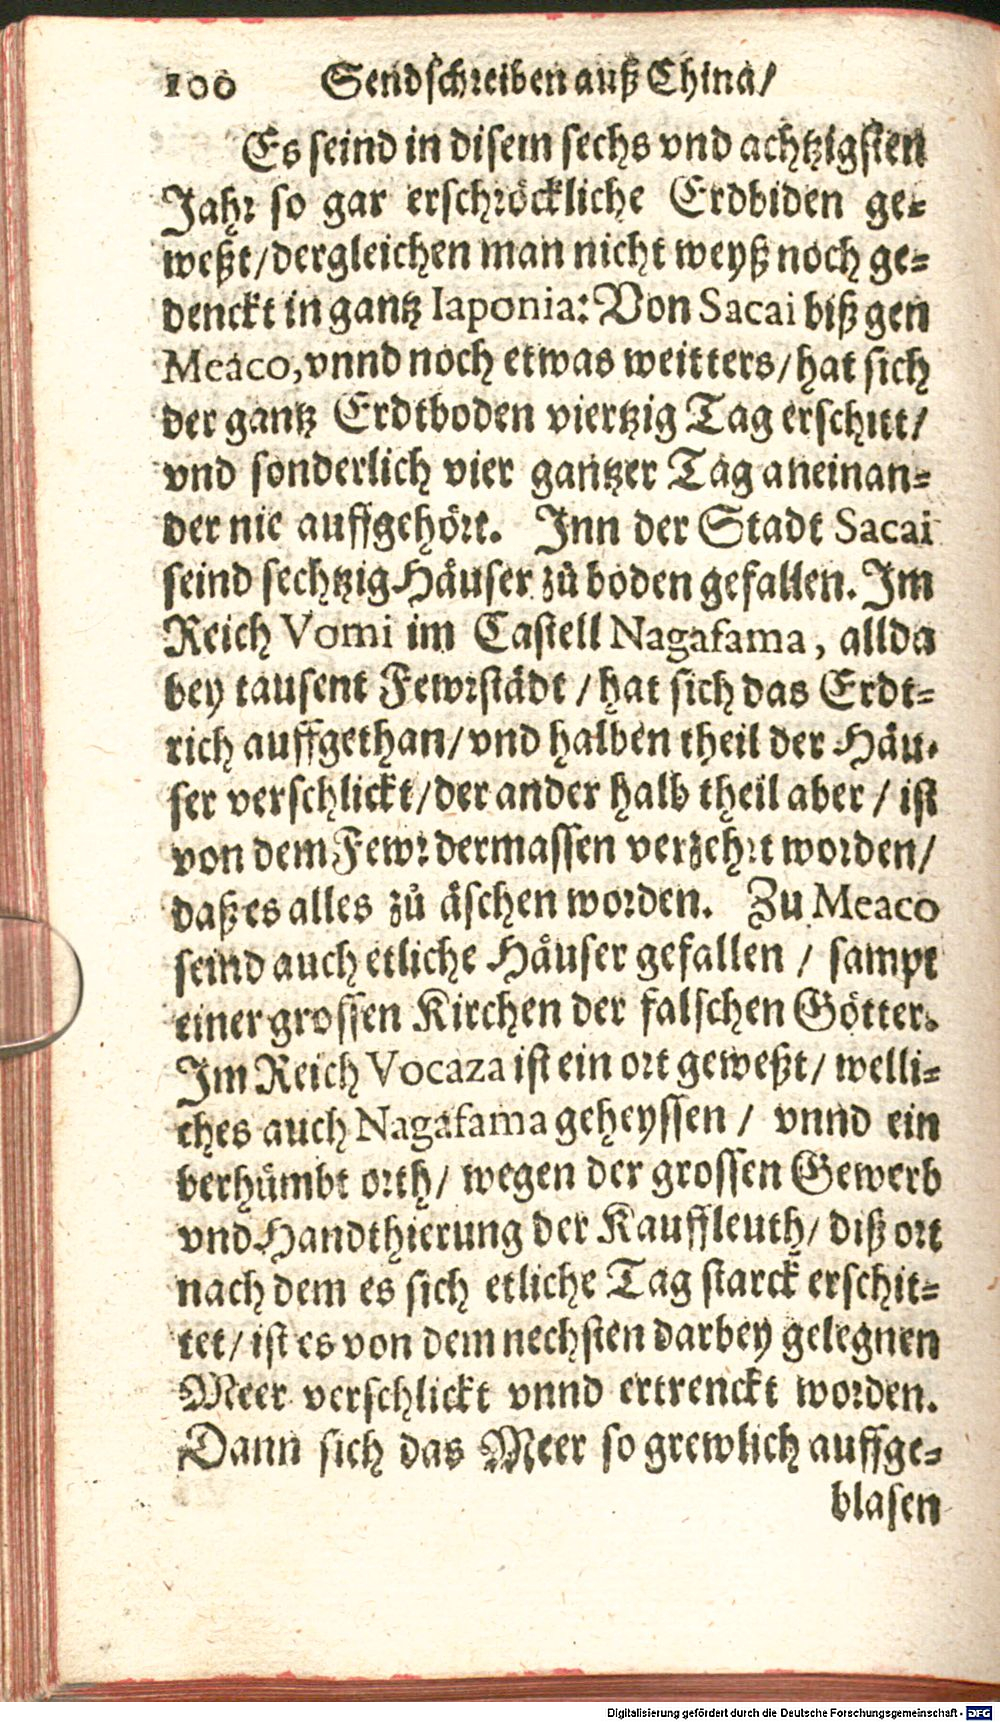 100 Sendschreiben auß China/
Es seind in disem sechs vnd achtzigsten
Jahr so gar erschröckliche Erdbiden ge-
weßt/dergleichen man nicht weyß noch ge-
denckt in gantz Iaponia: Von Sacai biß gen
Meaco, vnnd noch etwas weitters/hat sich
der gantz Erdtboden viertzig Tag erschitt/
vnd sonderlich vier gantzer Tag aneinan-
der nie auffgehört. Inn der Stadt Sacai
seind sechtzig Häuser zů boden gefallen. Im
Reich Vomi im Castell Nagaſama, allda
bey tausent Fewrstädt / hat sich das Erdt-
rich auffgethan/vnd halben theil der Häu-
ser verschlickt/der ander halb theil aber / ist
von dem Fewr dermassen verzehrt worden/
daß es alles zů äschen worden. Zu Meaco
seind auch etliche Häuser gefallen / sampt
einer grossen Kirchen der falschen Götter.
Im Reich Vocaza ist ein ort geweßt/ welli-
ches auch Nagaſama geheyssen / vnnd ein
berhümbt orth/ wegen der grossen Gewerb
vnd Handthierung der Kauffleuth/ diß ort
nach dem es sich etliche Tag starck erschit-
tet/ ist es von dem nechsten darbey gelegnen
Meer verschlickt vnnd ertrenckt worden.
Dann sich das Meer so grewlich auffge-
blasen
Digitalisierung gefördert durch die Deutsche Forschungsgemeinschaft - DFG